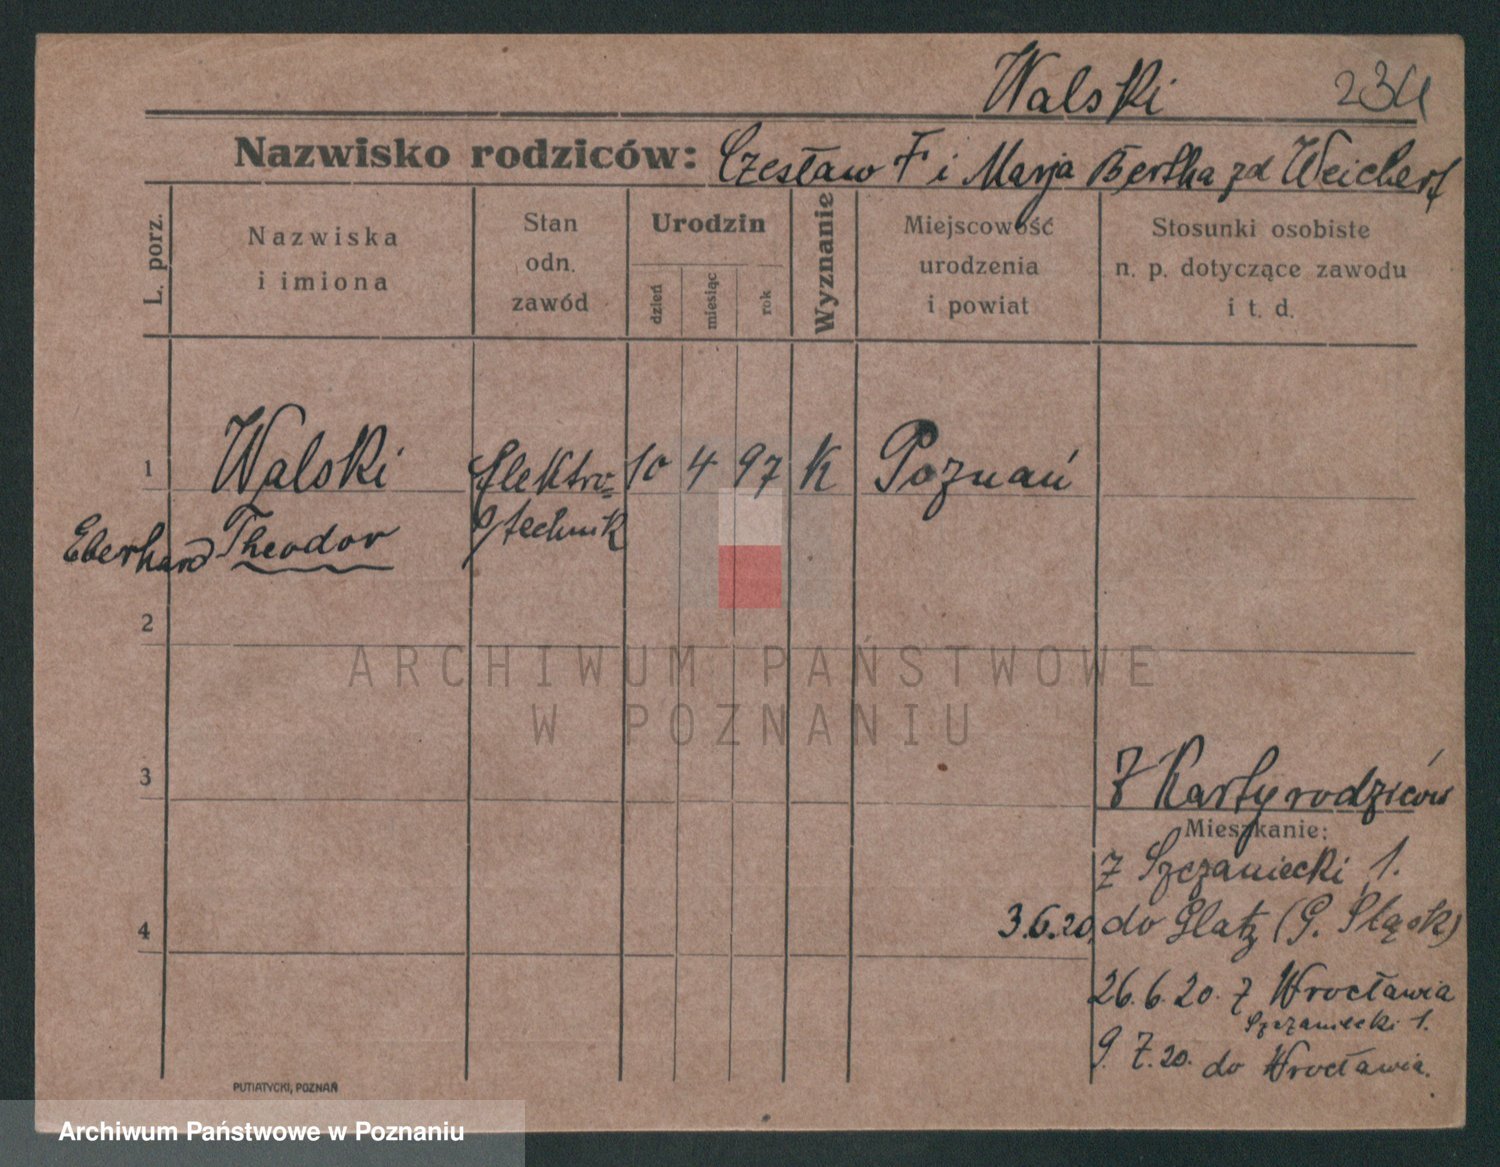 Walski 234
Nazwisko rodziców: Czesław F i Marja Bertha zd Weichert
L. porz.
Nazwiska
i imiona
Stan
odn.
zawód
Urodzin
dzień
miesiąc
rok
Wyznanie
Miejscowość
urodzenia
i powiat
Stosunki osobiste
n. p. dotyczące zawodu
i t. d.
1 Walski Elektro= 10 4 97 K Poznań
Eberhard Theodor technik
2
ARCHIWUM PAŃSTWOWE
W POZNANIU
3
Z Karty rodziców
Mieszkanie:
Z Szczaniecki 1.
4
3.6.20. do Glatz (G. Śląsk)
26.6.20. Z Wrocławia
Szczaniecki 1.
9.7.20. do Wrocławia.
PUTIATYCKI, POZNAŃ
Archiwum Państwowe w Poznaniu